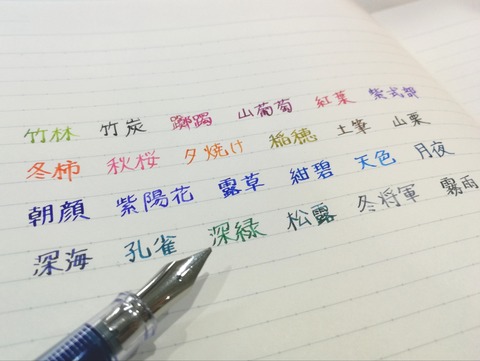 竹林 竹炭 躑躅 山葡萄 紅葉 紫式部
冬柿 秋桜 夕焼け 稲穂 土筆 山栗
朝顔 紫陽花 露草 紺碧 天色 月夜
深海 孔雀 深緑 松露 冬将軍 霧雨